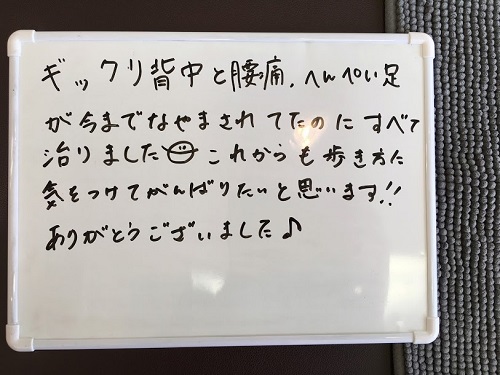 ギックリ背中と腰痛、へんぺい足
が今までなやまされてたのにすべて
治りました😊これからも歩き方に
気をつけてがんばりたいと思います!!
ありがとうございました♪